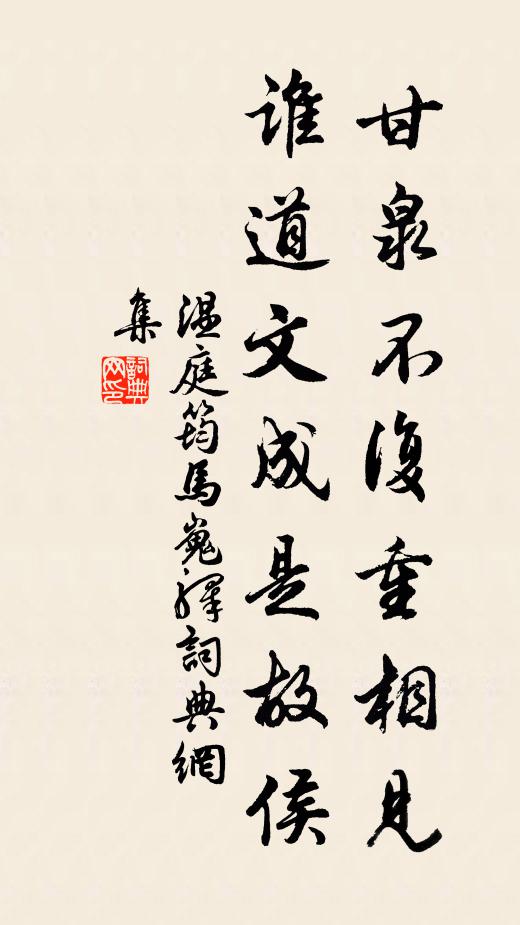 甘泉不復重相見
誰道文成是故侯
溫庭筠馬嵬驛詞典網
集
詞典
网印